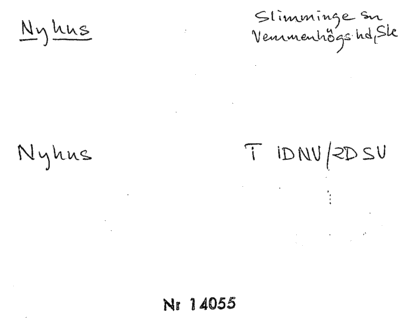 Nyhus
Slimminge sn
Vemmenhögs hd, Sk
Nyhus
T 1DNV/2DSV
Nr 14055